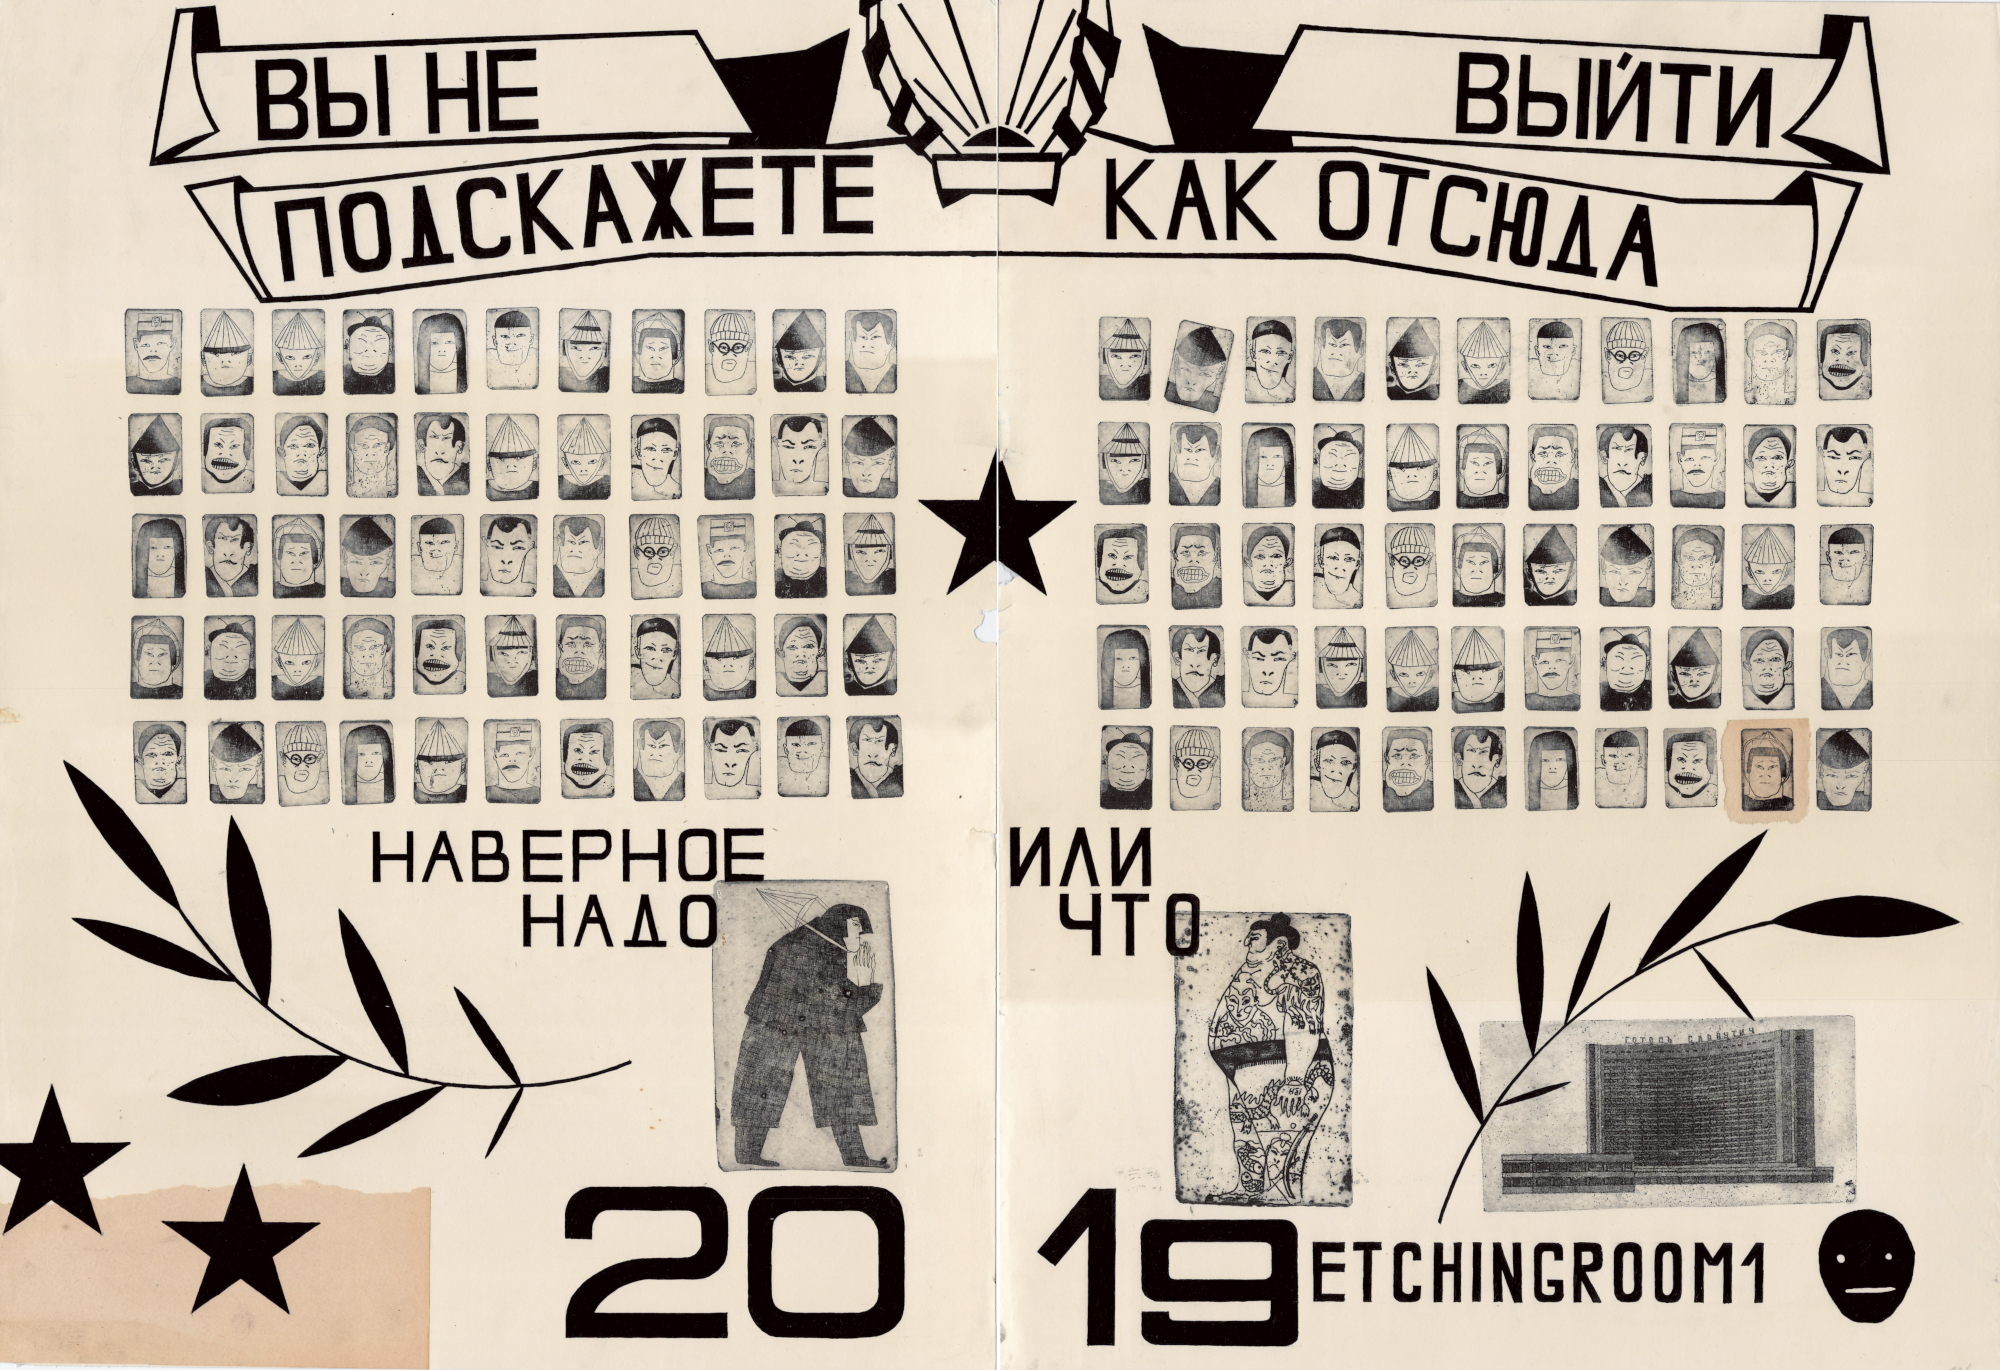 ВЫ НЕ
ПОДСКАЖЕТЕ
КАК ОТСЮДА
ВЫЙТИ
НАВЕРНОЕ
НАДО
ИЛИ
ЧТО
ГОТЕЛЬ СЛАВУТИЧ
2019
ETCHINGROOM1